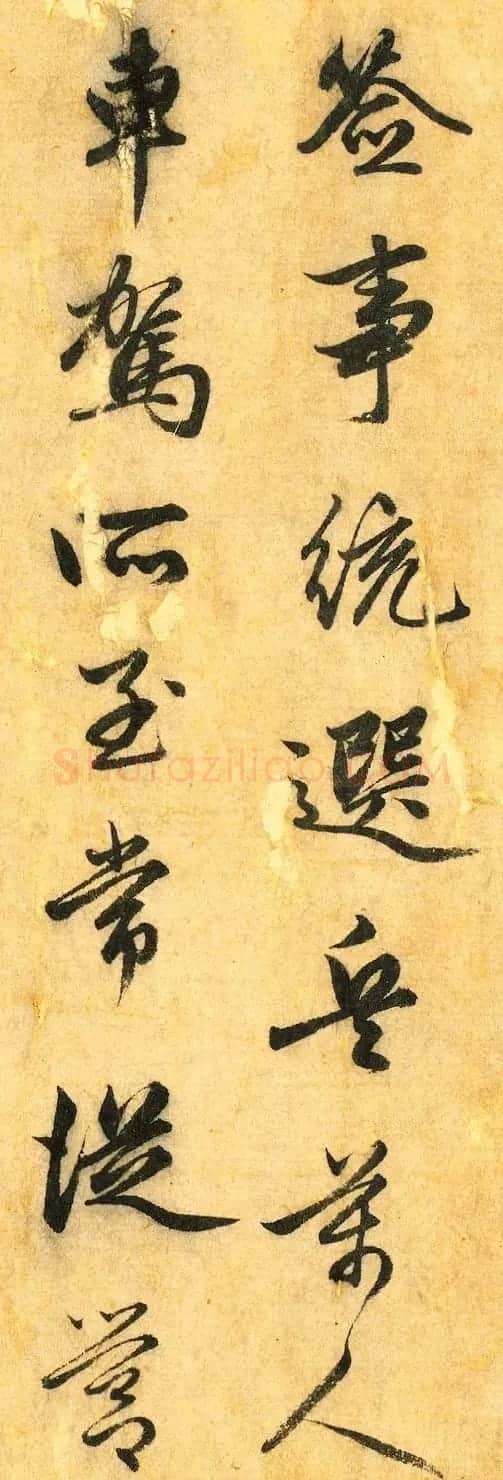 签事统选兵萬人
車駕所至常從营
Shufaziliao.com